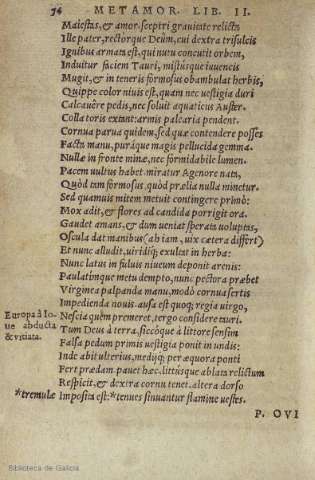 74 METAMOR. LIB. II.
Maiestas, & amor. sceptri grauitate relicta
Ille pater, rectorque Deûm, cui dextra trisulcis
Ignibus armata est, qui nutu concutit orbem,
Induitur faciem Tauri, mistusque iuuencis
Mugit, & in teneris formosus obambulat herbis,
Quippe color niuis est, quam nec uestigia duri
Calcauêre pedis, nec soluit aquaticus Auster.
Colla toris extant: armis palearia pendent.
Cornua parua quidem, sed quæ contendere posses
Facta manu, puráque magis pellucida gemma.
Nullæ in fronte minæ, nec formidabile lumen.
Pacem uultus habet. miratur Agenore nata,
Quòd tam formosus, quòd prælia nulla minetur.
Sed quamuis mitem metuit contingere primò:
Mox adit, & flores ad candida porrigit ora.
Gaudet amans, & dum ueniat sperata uoluptas,
Oscula dat manibus (ah iam, uix cætera differt)
Et nunc alludit, uiridiq; exultat in herba:
Nunc latus in fuluis niueum deponit arenis:
Paulatimque metu dempto, nunc pectora præbet
Virginea palpanda manu, modò cornua sertis
Impedienda nouis. ausa est quoq; regia uirgo,
Europa à Io-
ue abducta
& uitiata.
Nescia quem premeret, tergo considere tauri.
Tum Deus à terra, siccóque à littore sensim
Falsa pedum primis uestigia ponit in undis:
Inde abit ulterius, mediiq; per æquora ponti
Fert prædam. pauet hæc, littúsque ablata relictum
Respicit, & dextra cornu tenet. altera dorso
*tremulæ Imposita est: *tenues sinuantur flamine uestes.
P. OVI
Biblioteca de Galicia